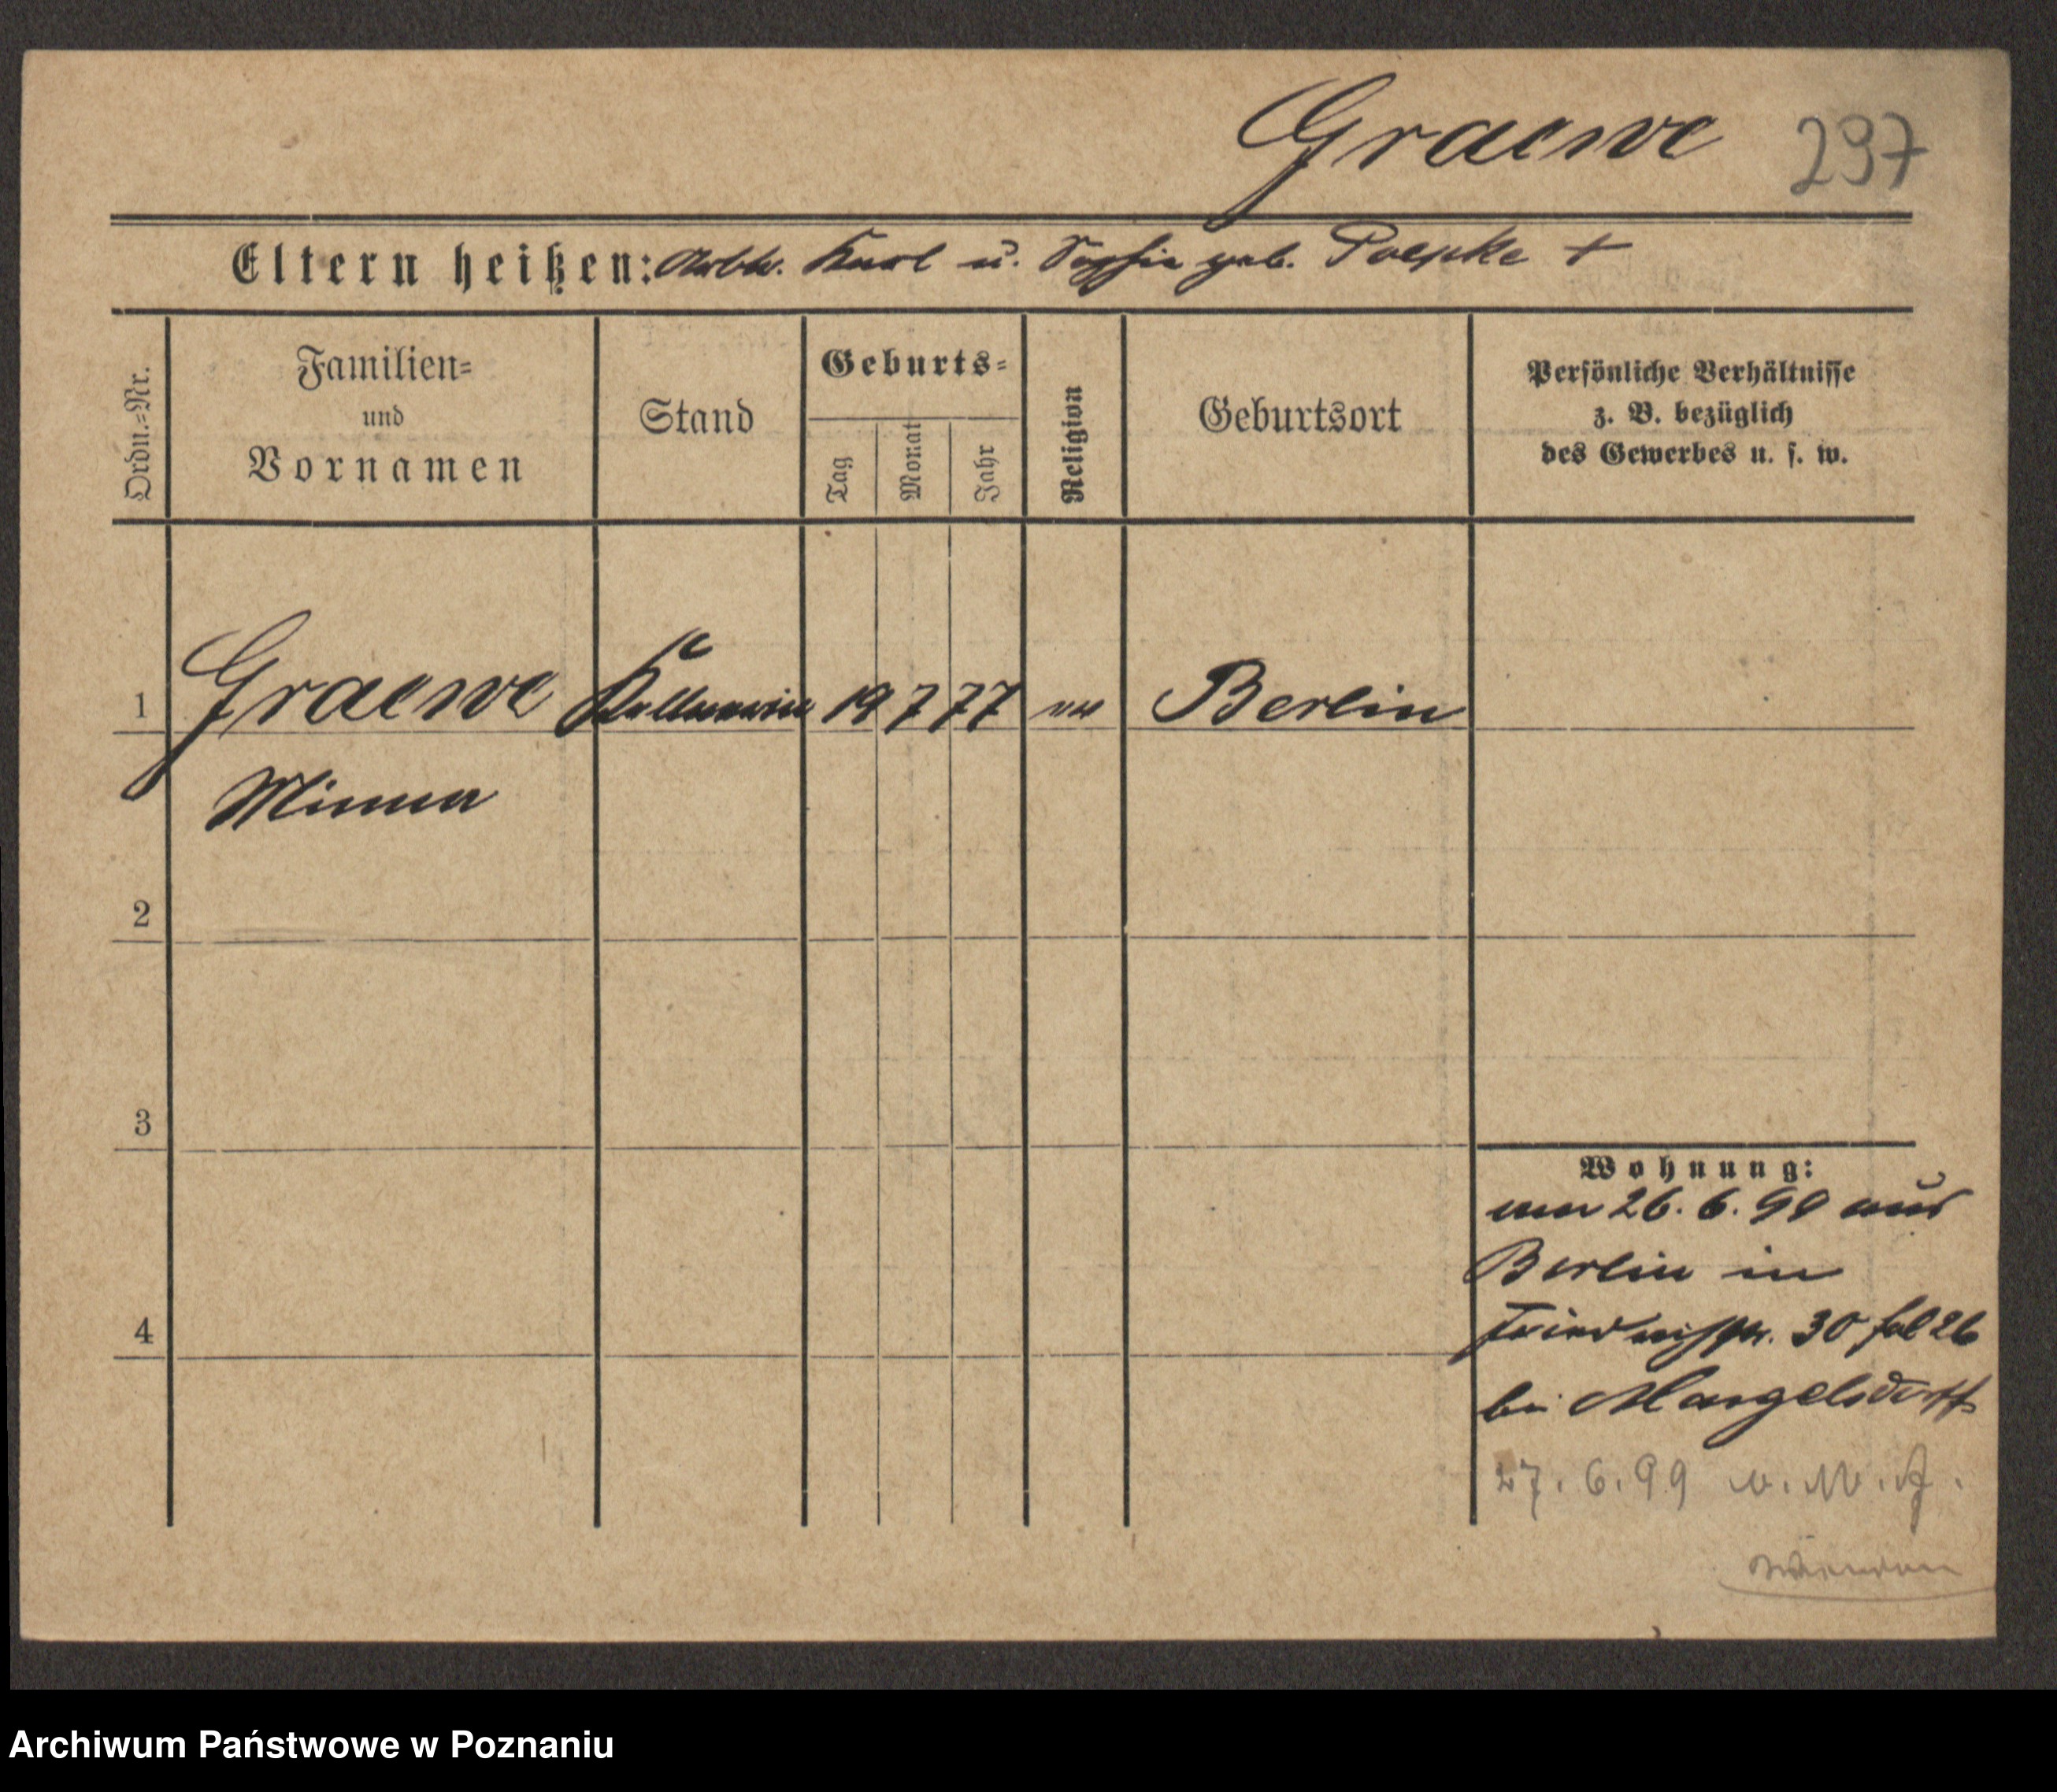 Graewe 297
Eltern heißen: Arbtr. Karl u. Sophie geb. Poepke +
Ordn.-Nr.
Familien-
und
Vornamen
Stand
Geburts-
Tag
Monat
Jahr
Religion
Geburtsort
Persönliche Verhältnisse
z. B. bezüglich
des Gewerbes u. s. w.
1 Graewe Kellnerin 19 7 77 ev Berlin
Minna
2
3
Wohnung:
am 26. 6. 99 aus
Berlin in
4
30
bei Mangelsdorff
27. 6. 99
Archiwum Państwowe w Poznaniu